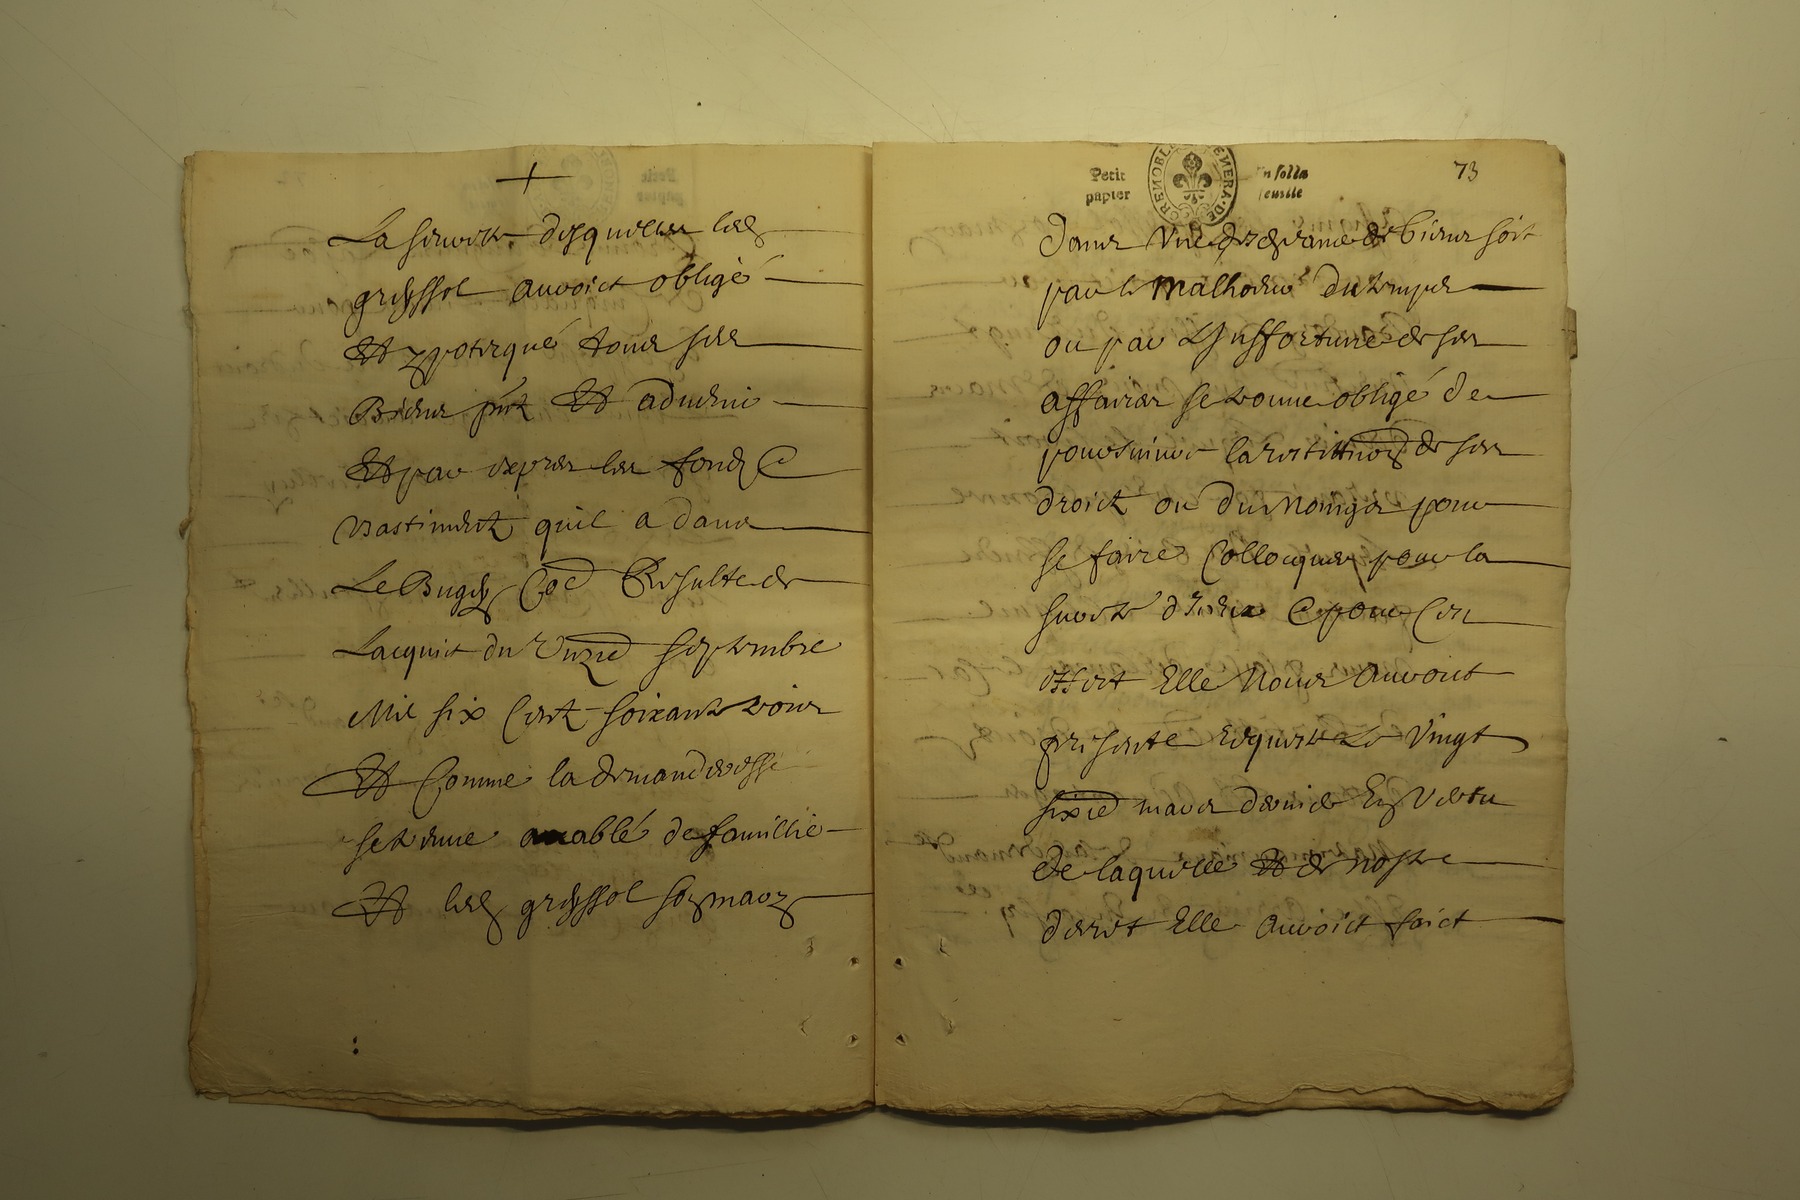 +
La surette desquelles led
greyssol auvoict obligé
Et ypotequé tous ses
Biens pnt Et advenir
Et par exprès les fonds &
Bastiments quil a dans
Le Bugey Coe Resulte de
Lacquit du Unze septembre
Mil six Cent soixante trois
Et Comme la demanderesse
se treuve acablé de famillie
Et led greyssol son mary
Petit papier
GRENOBLE GENERA. DE
En folio feuille
73
dans Une decadance de biens soit
par le Malheur du temps
ou par Linffortune de ses
affaires se trouve obligé de
poursuivre la restitution de ses
droict ou du Moings pour
se faire Collocquer pour la
surette dIceux & pour Cet
effect Elle Nous Auroict
presenté Requeste Le Vingt
sixie mars dernier En Vertu
de laquelle Et de nostre
decret Elle Auvoict faict